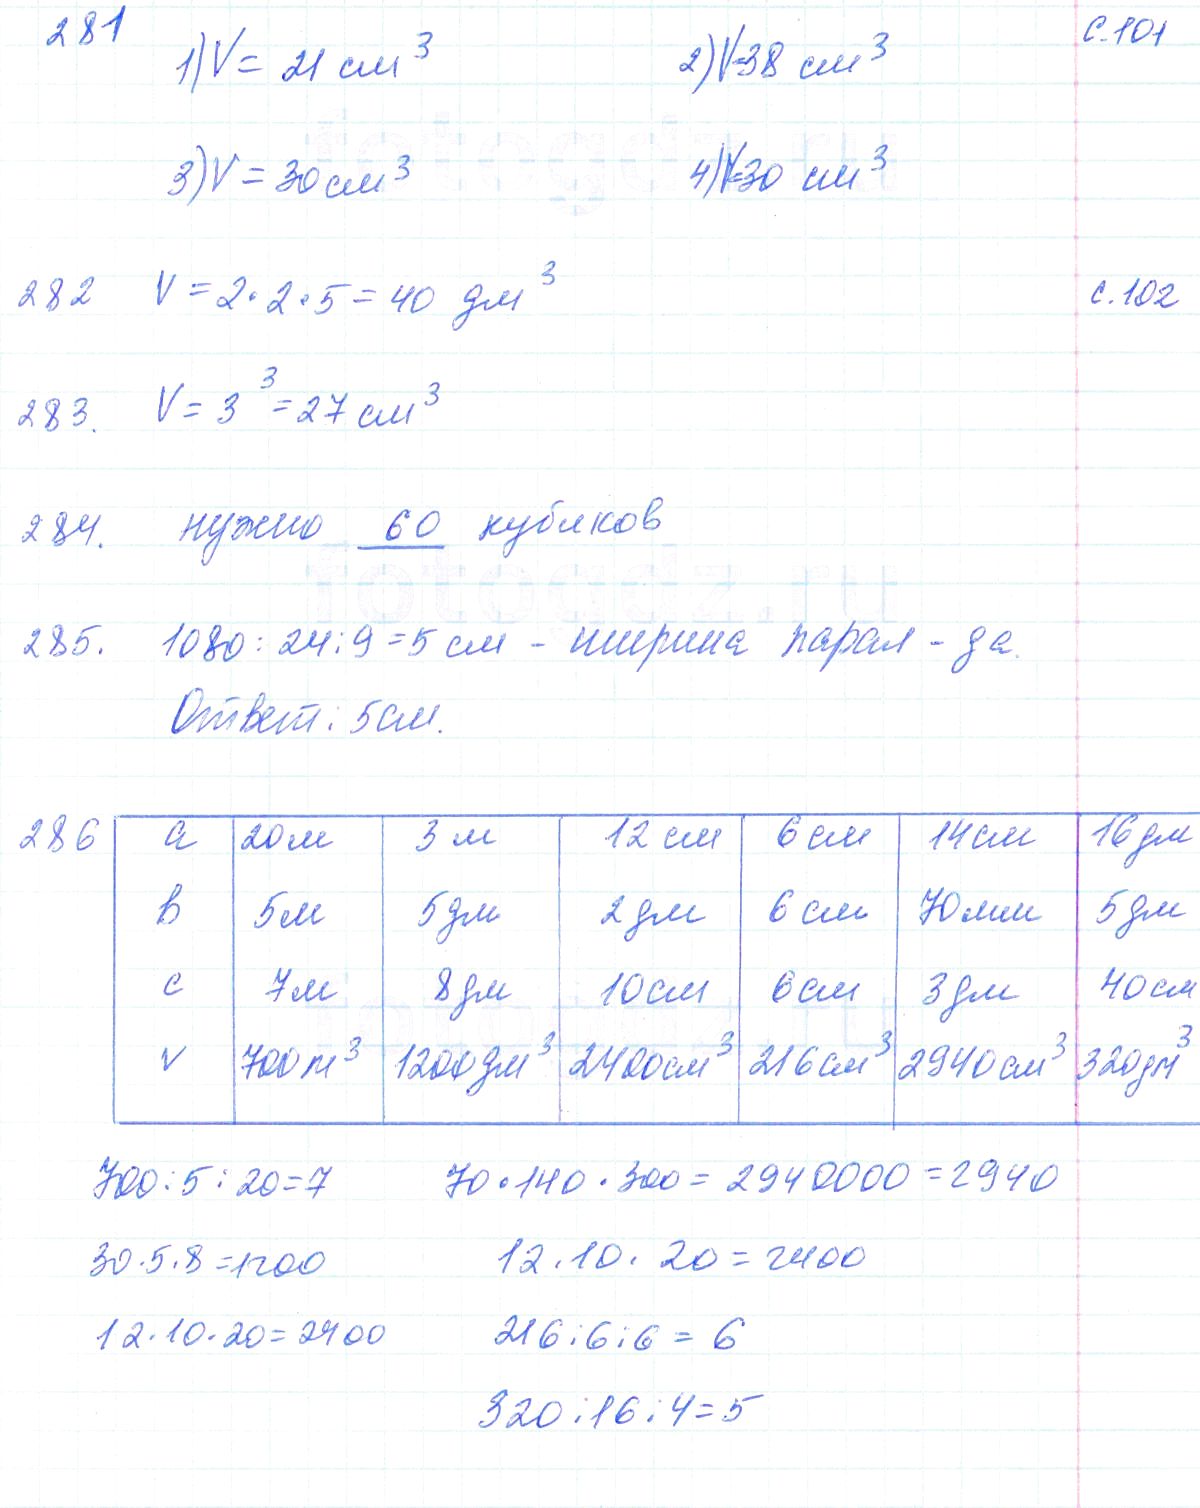 281 с.101
1) V = 21 см³ 2) V=38 см³
3) V = 30 см³ 4) V=30 см³
282 V = 2·2·5 = 40 дм³ с.102
283. V = 3³ = 27 см³
284. нужно 60 кубиков
285. 1080 : 24 : 9 = 5 см - ширина парал-да.
Ответ: 5 см.
286 a 20м 3 м 12 см 6 см 14 см 16 дм
b 5м 5 дм 2 дм 6 см 70 мм 5 дм
c 7м 8 дм 10 см 6 см 3 дм 40 см
V 700 м³ 1200 дм³ 2400 см³ 216 см³ 2940 см³ 320 дм³
700 : 5 : 20 = 7 70 · 140 · 300 = 2940000 = 2940
30·5·8 = 1200 12·10·20 = 2400
12·10·20 = 2400 216 : 6 : 6 = 6
320 : 16 : 4 = 5
fotogdz.ru
fotogdz.ru
fotogdz.ru